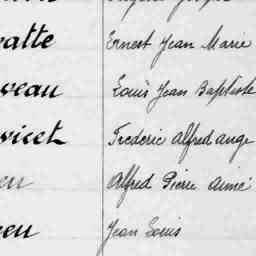 atte Ernest Jean Marie
veau Louis Jean Baptiste
vicet Frederic Alfred ange
eu Alfred Pierre aimé
eu Jean Louis